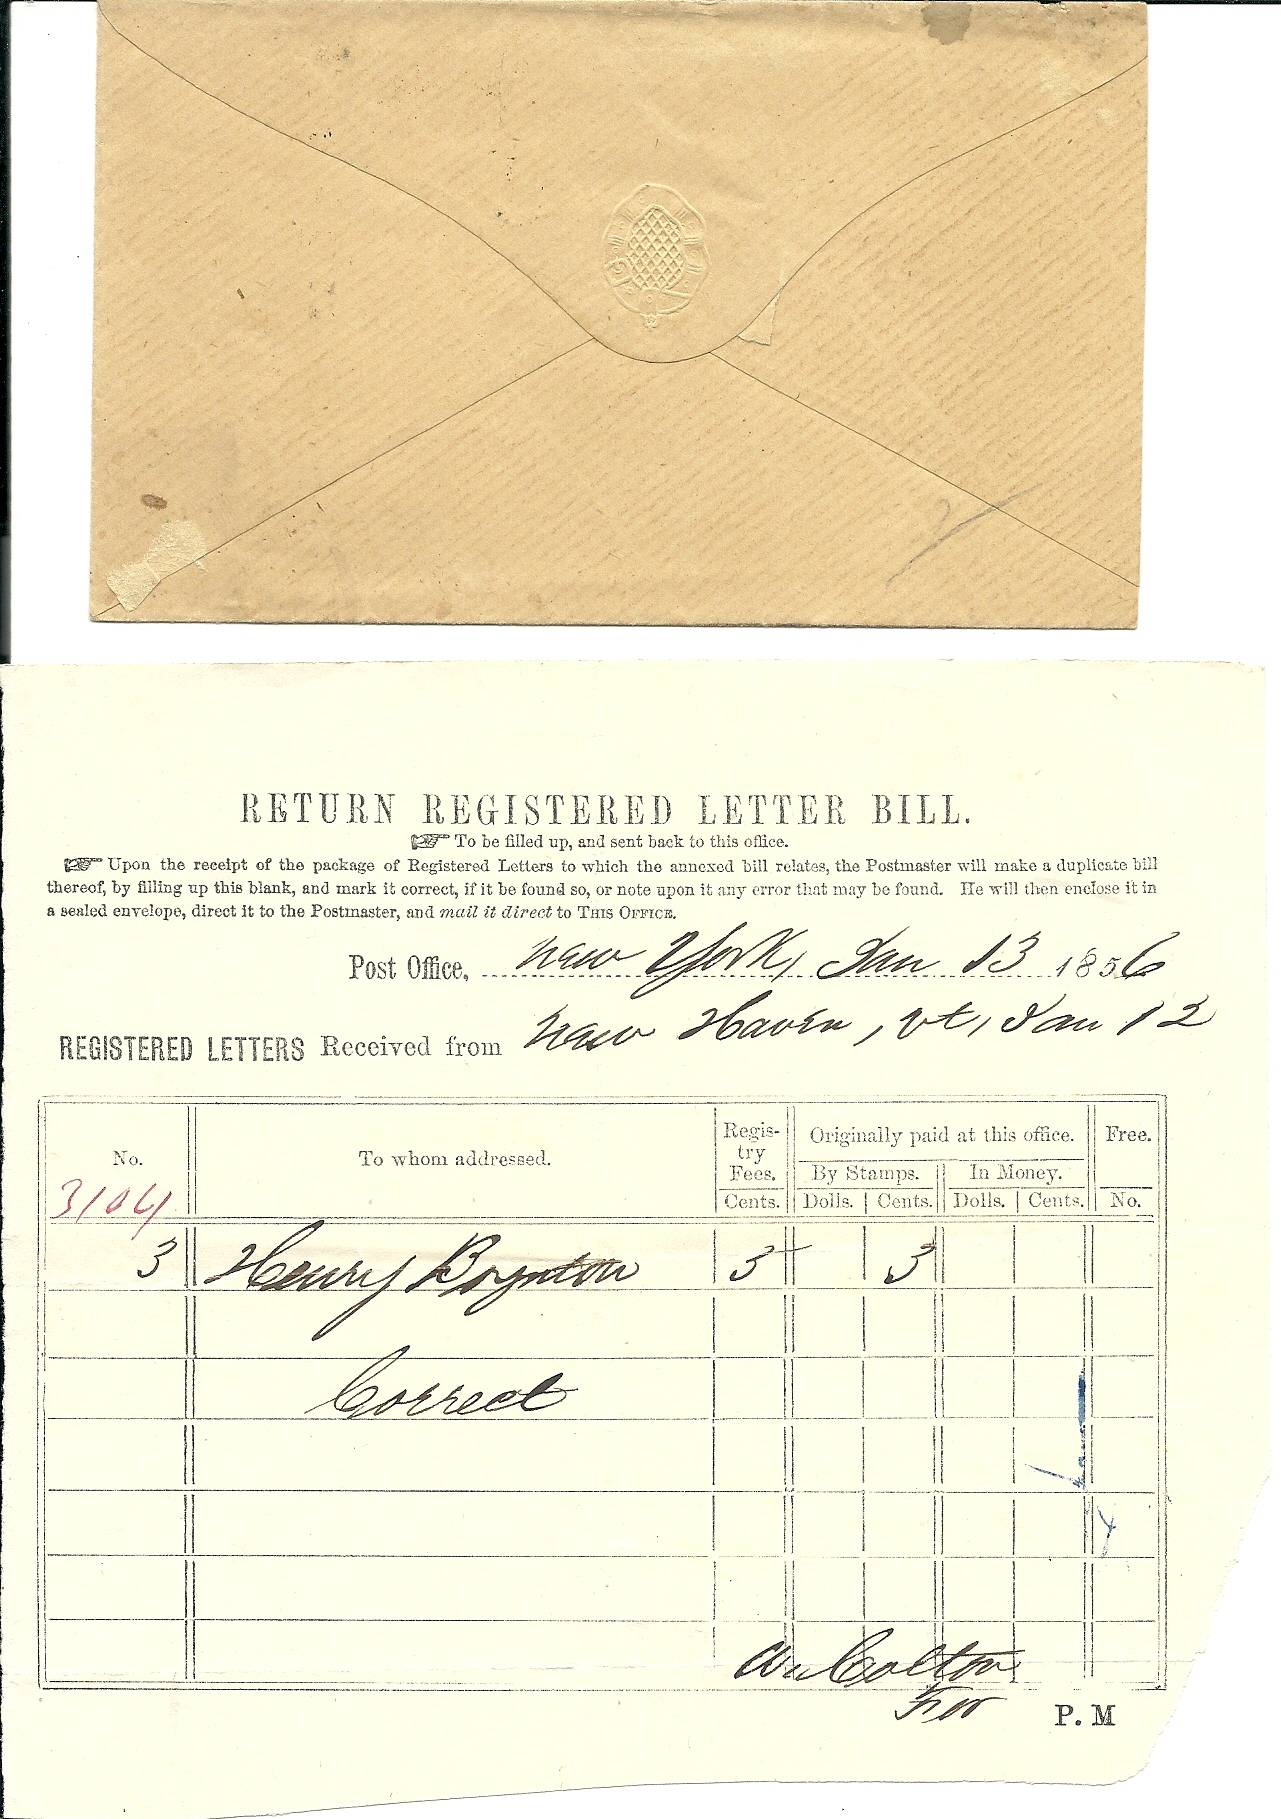 RETURN REGISTERED LETTER BILL.
☞ To be filled up, and sent back to this office.
☞ Upon the receipt of the package of Registered Letters to which the annexed bill relates, the Postmaster will make a duplicate bill
thereof, by filling up this blank, and mark it correct, if it be found so, or note upon it any error that may be found. He will then enclose it in
a sealed envelope, direct it to the Postmaster, and mail it direct to THIS OFFICE.
Post Office, New York, Jan 13 1856
REGISTERED LETTERS Received from New Haven, Vt, Jan 12
No. To whom addressed. Regis- Originally paid at this office. Free.
try
Fees. By Stamps. In Money.
Cents. Dolls. Cents. Dolls. Cents. No.
3104
3 Henry Boynton 5 3
Correct
Wm Colton
For P. M